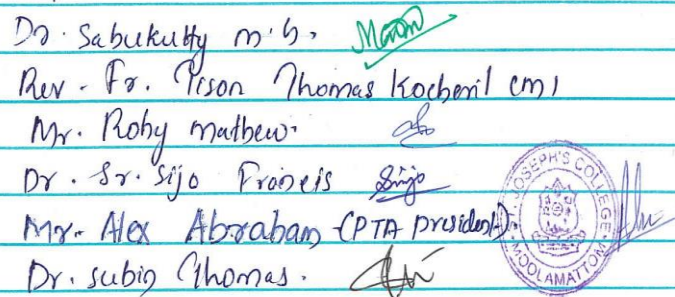 Dr. Sabukutty M.G.
Rev. Fr. Thomas Kocheril CMI
Mr. Roby Mathew.
Dr. Sr. Sijo Francis Sijo
Mr. Alex Abraham (PTA president).
Dr. Subin Thomas.
JOSEPH'S COLLEGE MOOLAMATTOM